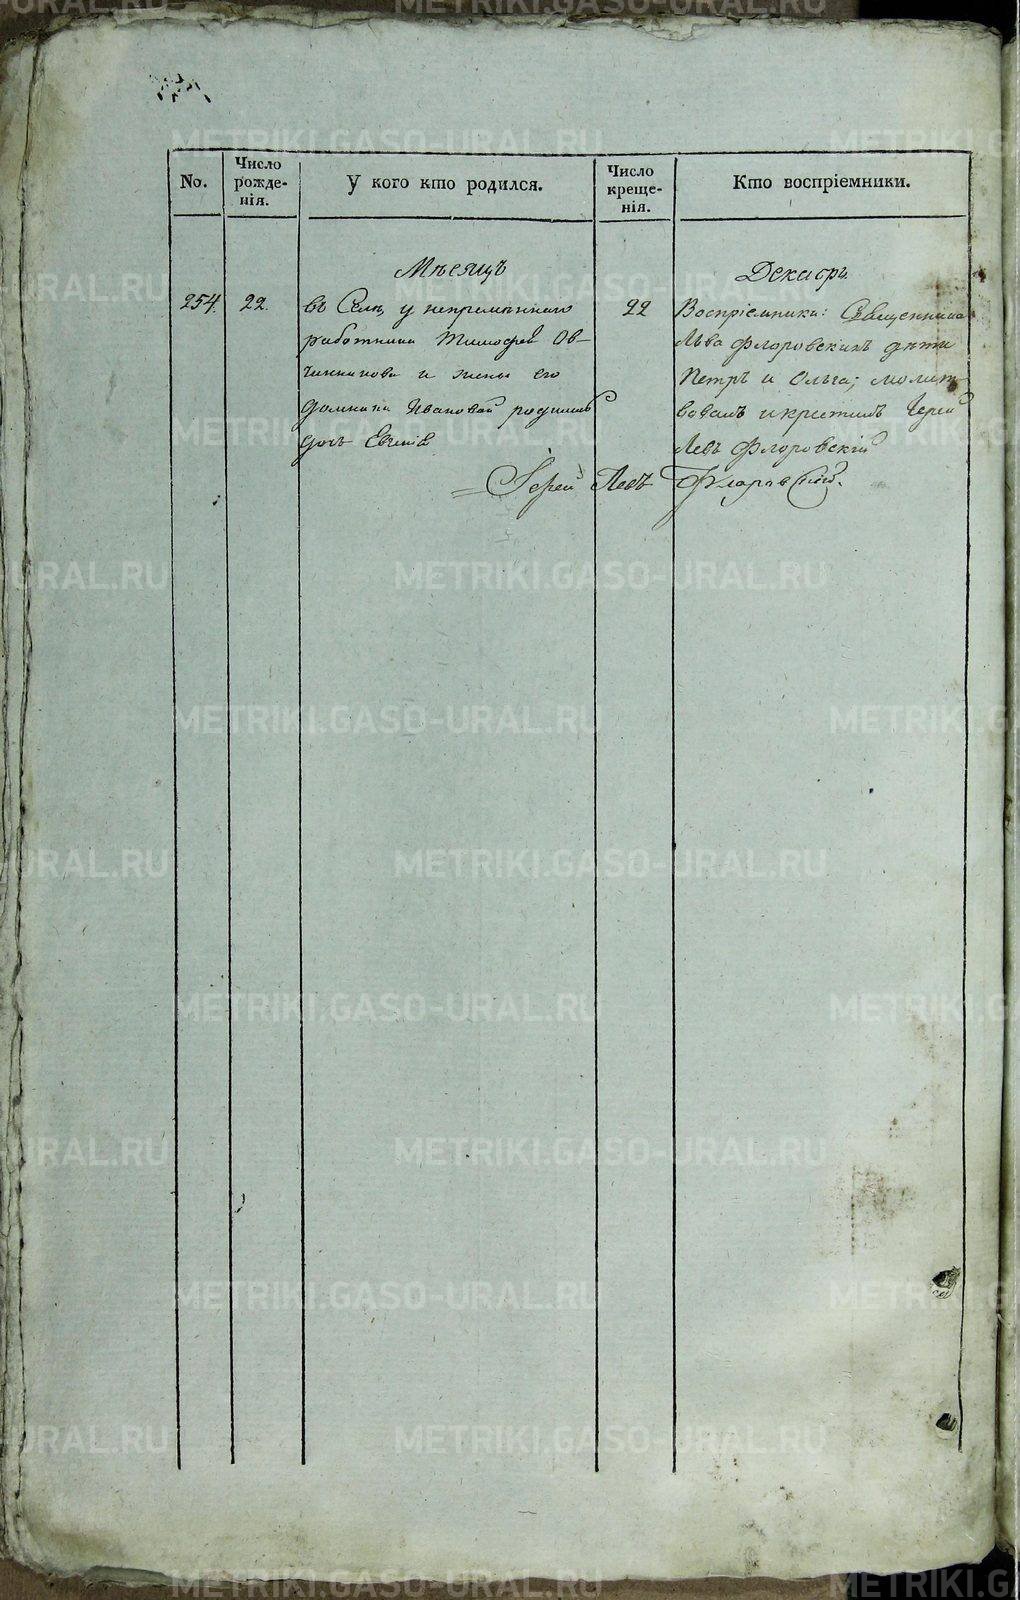 No.
Число рожде-нія.
У кого кто родился.
Число креще-нія.
Кто воспріемники.
Мѣсяцъ Декабрь
254. 22. въ Селѣ у непремѣннаго 22 Воспріемники: Священника
работника Тимофея Ов- Льва Флоровскихъ дѣти
чинникова и жены его Петръ и Ольга; молит-
Домники Ивановой родилась вовалъ и крестилъ Іерей
дочь Евгенія Левъ Флоровскій
Іерей Левъ Флоровскій.
METRIKI.GASO-URAL.RU